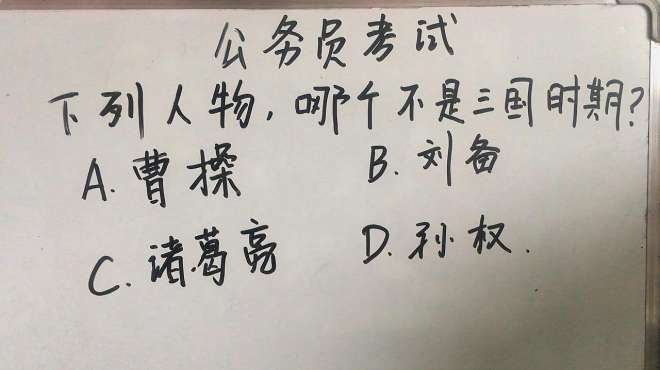 公务员考试
下列人物，哪个不是三国时期？
A. 曹操 B. 刘备
C. 诸葛亮 D. 孙权.